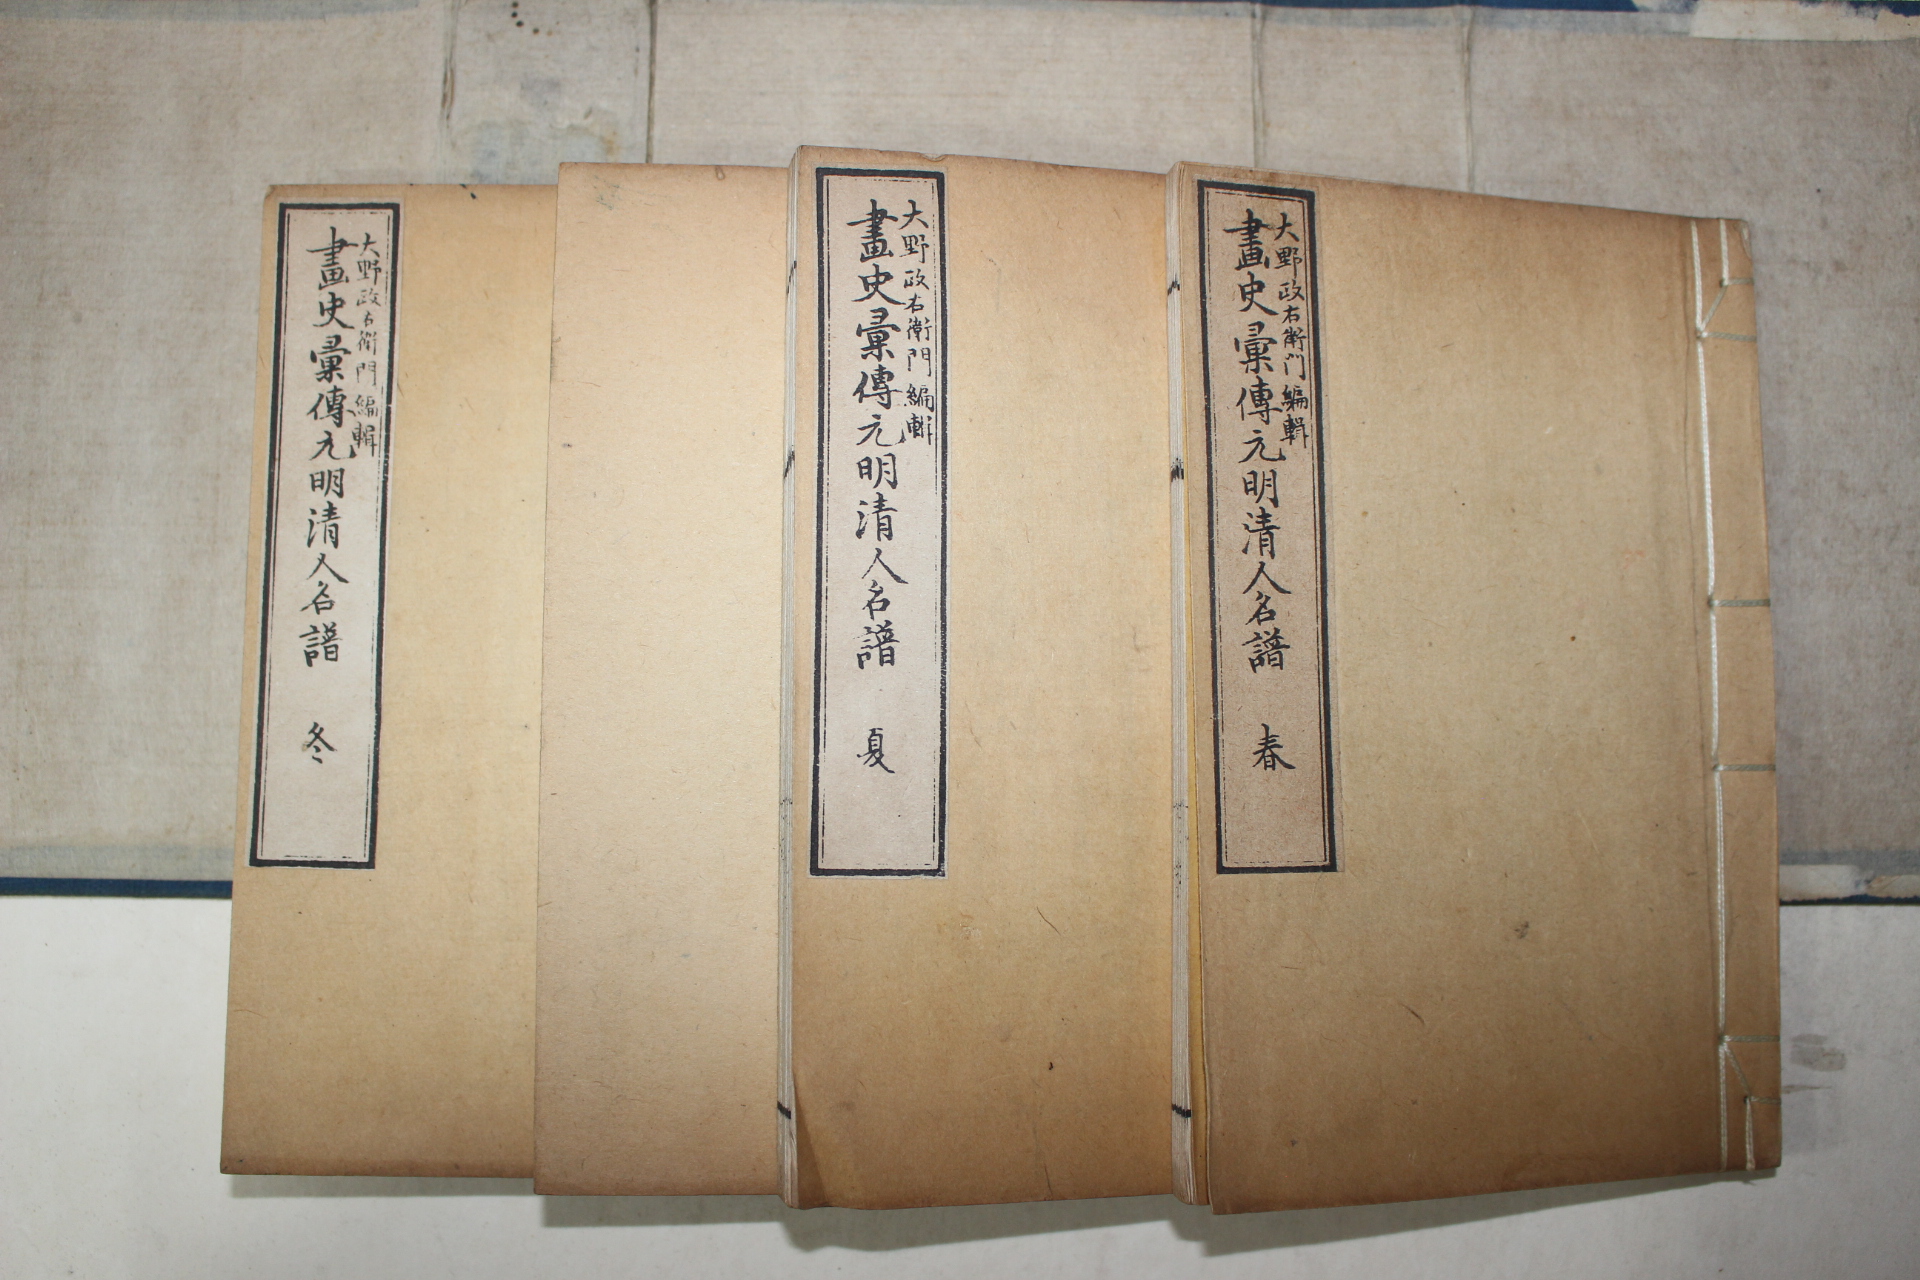 大野政右衛門編輯
畫史彙傳元明清人名譜 春
大野政右衛門編輯
畫史彙傳元明清人名譜 夏
大野政右衛門編輯
畫史彙傳元明清人名譜 冬